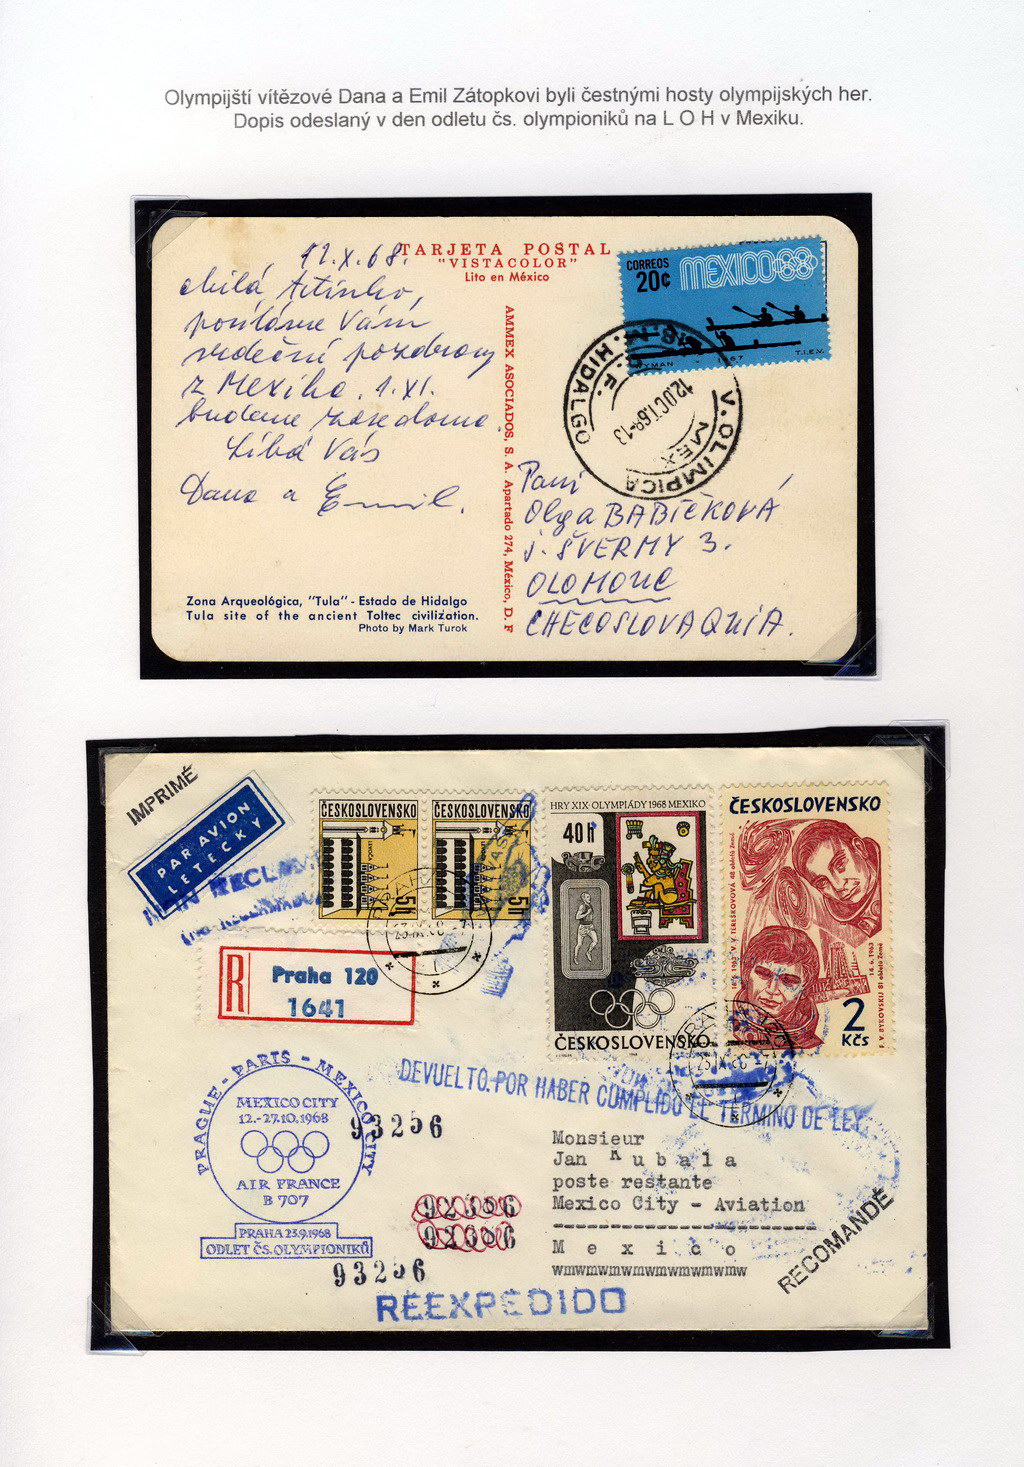 Olympijští vítězové Dana a Emil Zátopkovi byli čestnými hosty olympijských her.
Dopis odeslaný v den odletu čs. olympioniků na L O H v Mexiku.
12.X.68.
Milá
posíláme Vám
srdečné pozdravy
z Mexika. 1.XI.
budeme
Líbá Vás
Dana a Emil.
TARJETA POSTAL
"VISTACOLOR"
Lito en México
AMMEX ASOCIADOS, S. A. Apartado 274, México, D. F
CORREOS
20¢
MEXICO68
1967
T.I.E.V.
V. OLIMPICA
M. HIDALGO
12.OCT.68-13
MEX
Paní
Olga BABIČKOVÁ
J. ŠVERMY 3.
OLOMOUC
CHECOSLOVAQUIA.
Zona Arqueológica, "Tula" - Estado de Hidalgo
Tula site of the ancient Toltec civilization.
Photo by Mark Turok
IMPRIMÉ
PAR AVION
LETECKY
ČESKOSLOVENSKO
5h
ČESKOSLOVENSKO
5h
HRY XIX · OLYMPIÁDY 1968 MEXIKO
40 h
ČESKOSLOVENSKO
ČESKOSLOVENSKO
16.6.1963 V.V. TEREŠKOVOVÁ 48 obletů Země
14.6.1963
F. V. BYKOVSKIJ 81 obletů Země
2
Kčs
R
Praha 120
1641
DEVUELTO.POR HABER CUMPLIDO EL TERMINO DE LEY.
PRAGUE - PARIS - MEXICO CITY
MEXICO CITY
12.-27.10.1968
AIR FRANCE
B 707
PRAHA 23.9.1968
ODLET ČS. OLYMPIONIKŮ
93256
92356
92356
93256
Monsieur
Jan Kubala
poste restante
Mexico City - Aviation
Mexico
wmwmwmwmwmwmwmwmwmw
RECOMANDÉ
REEXPEDIDO